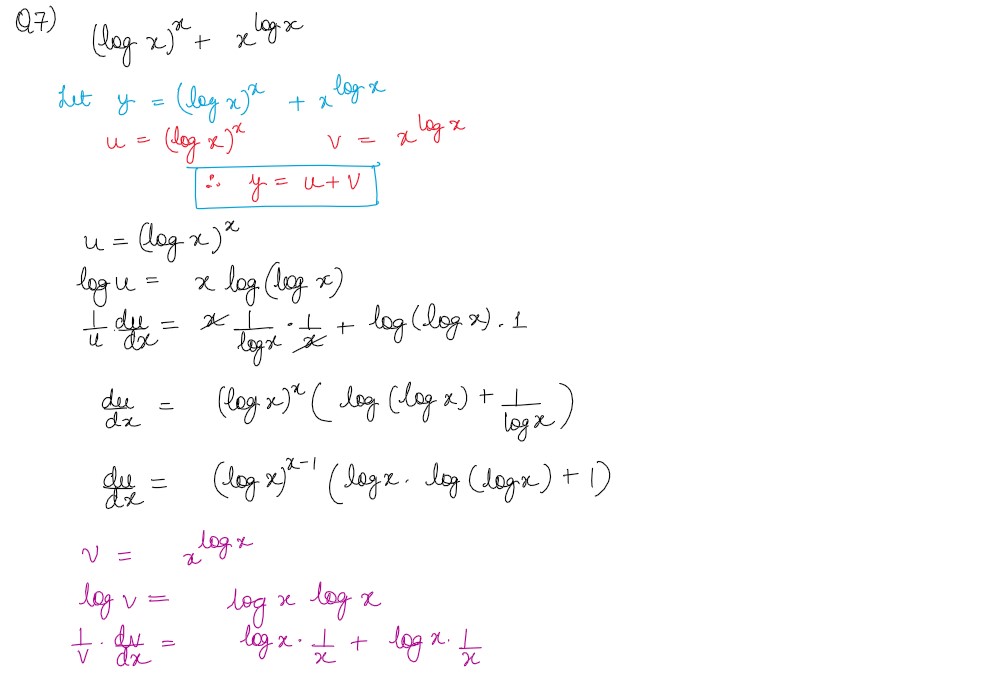 Q7) (log x)^x + x^{log x}
Let y = (log x)^x + x^{log x}
u = (log x)^x v = x^{log x}
∴ y = u + v
u = (log x)^x
log u = x log(log x)
1/u · du/dx = x 1/(log x) · 1/x + log(log x) · 1
du/dx = (log x)^x ( log (log x) + 1/(log x) )
du/dx = (log x)^{x-1} ( log x · log (log x) + 1 )
v = x^{log x}
log v = log x log x
1/v · dv/dx = log x · 1/x + log x · 1/x